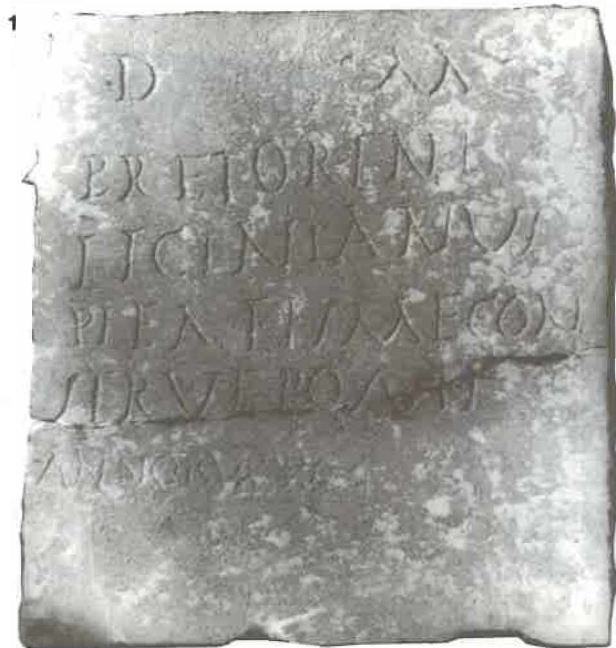 1
D M
PRETORINE
LICINIANVS
PIENTISMAE CON
SERVE POSIT